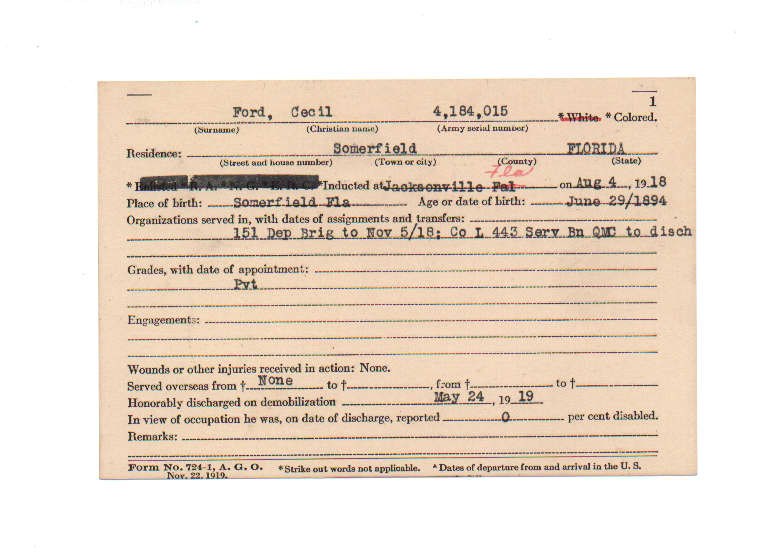 1
Ford, Cecil 4,184,015 * White. * Colored.
(Surname) (Christian name) (Army serial number)
Residence: Somerfield FLORIDA
(Street and house number) (Town or city) (County) (State)
Fla
* Enlisted * R. A. * N. G. * E. R. C. * Inducted at Jacksonville Fal on Aug 4, 1918
Place of birth: Somerfield Fla Age or date of birth: June 29/1894
Organizations served in, with dates of assignments and transfers:
151 Dep Brig to Nov 5/18; Co L 443 Serv Bn QMC to disch
Grades, with date of appointment:
Pvt
Engagements:
Wounds or other injuries received in action: None.
Served overseas from † None to †, from † to †
Honorably discharged on demobilization May 24, 1919
In view of occupation he was, on date of discharge, reported 0 per cent disabled.
Remarks:
Form No. 724-1, A. G. O. *Strike out words not applicable. Dates of departure from and arrival in the U. S.
Nov. 22, 1919.